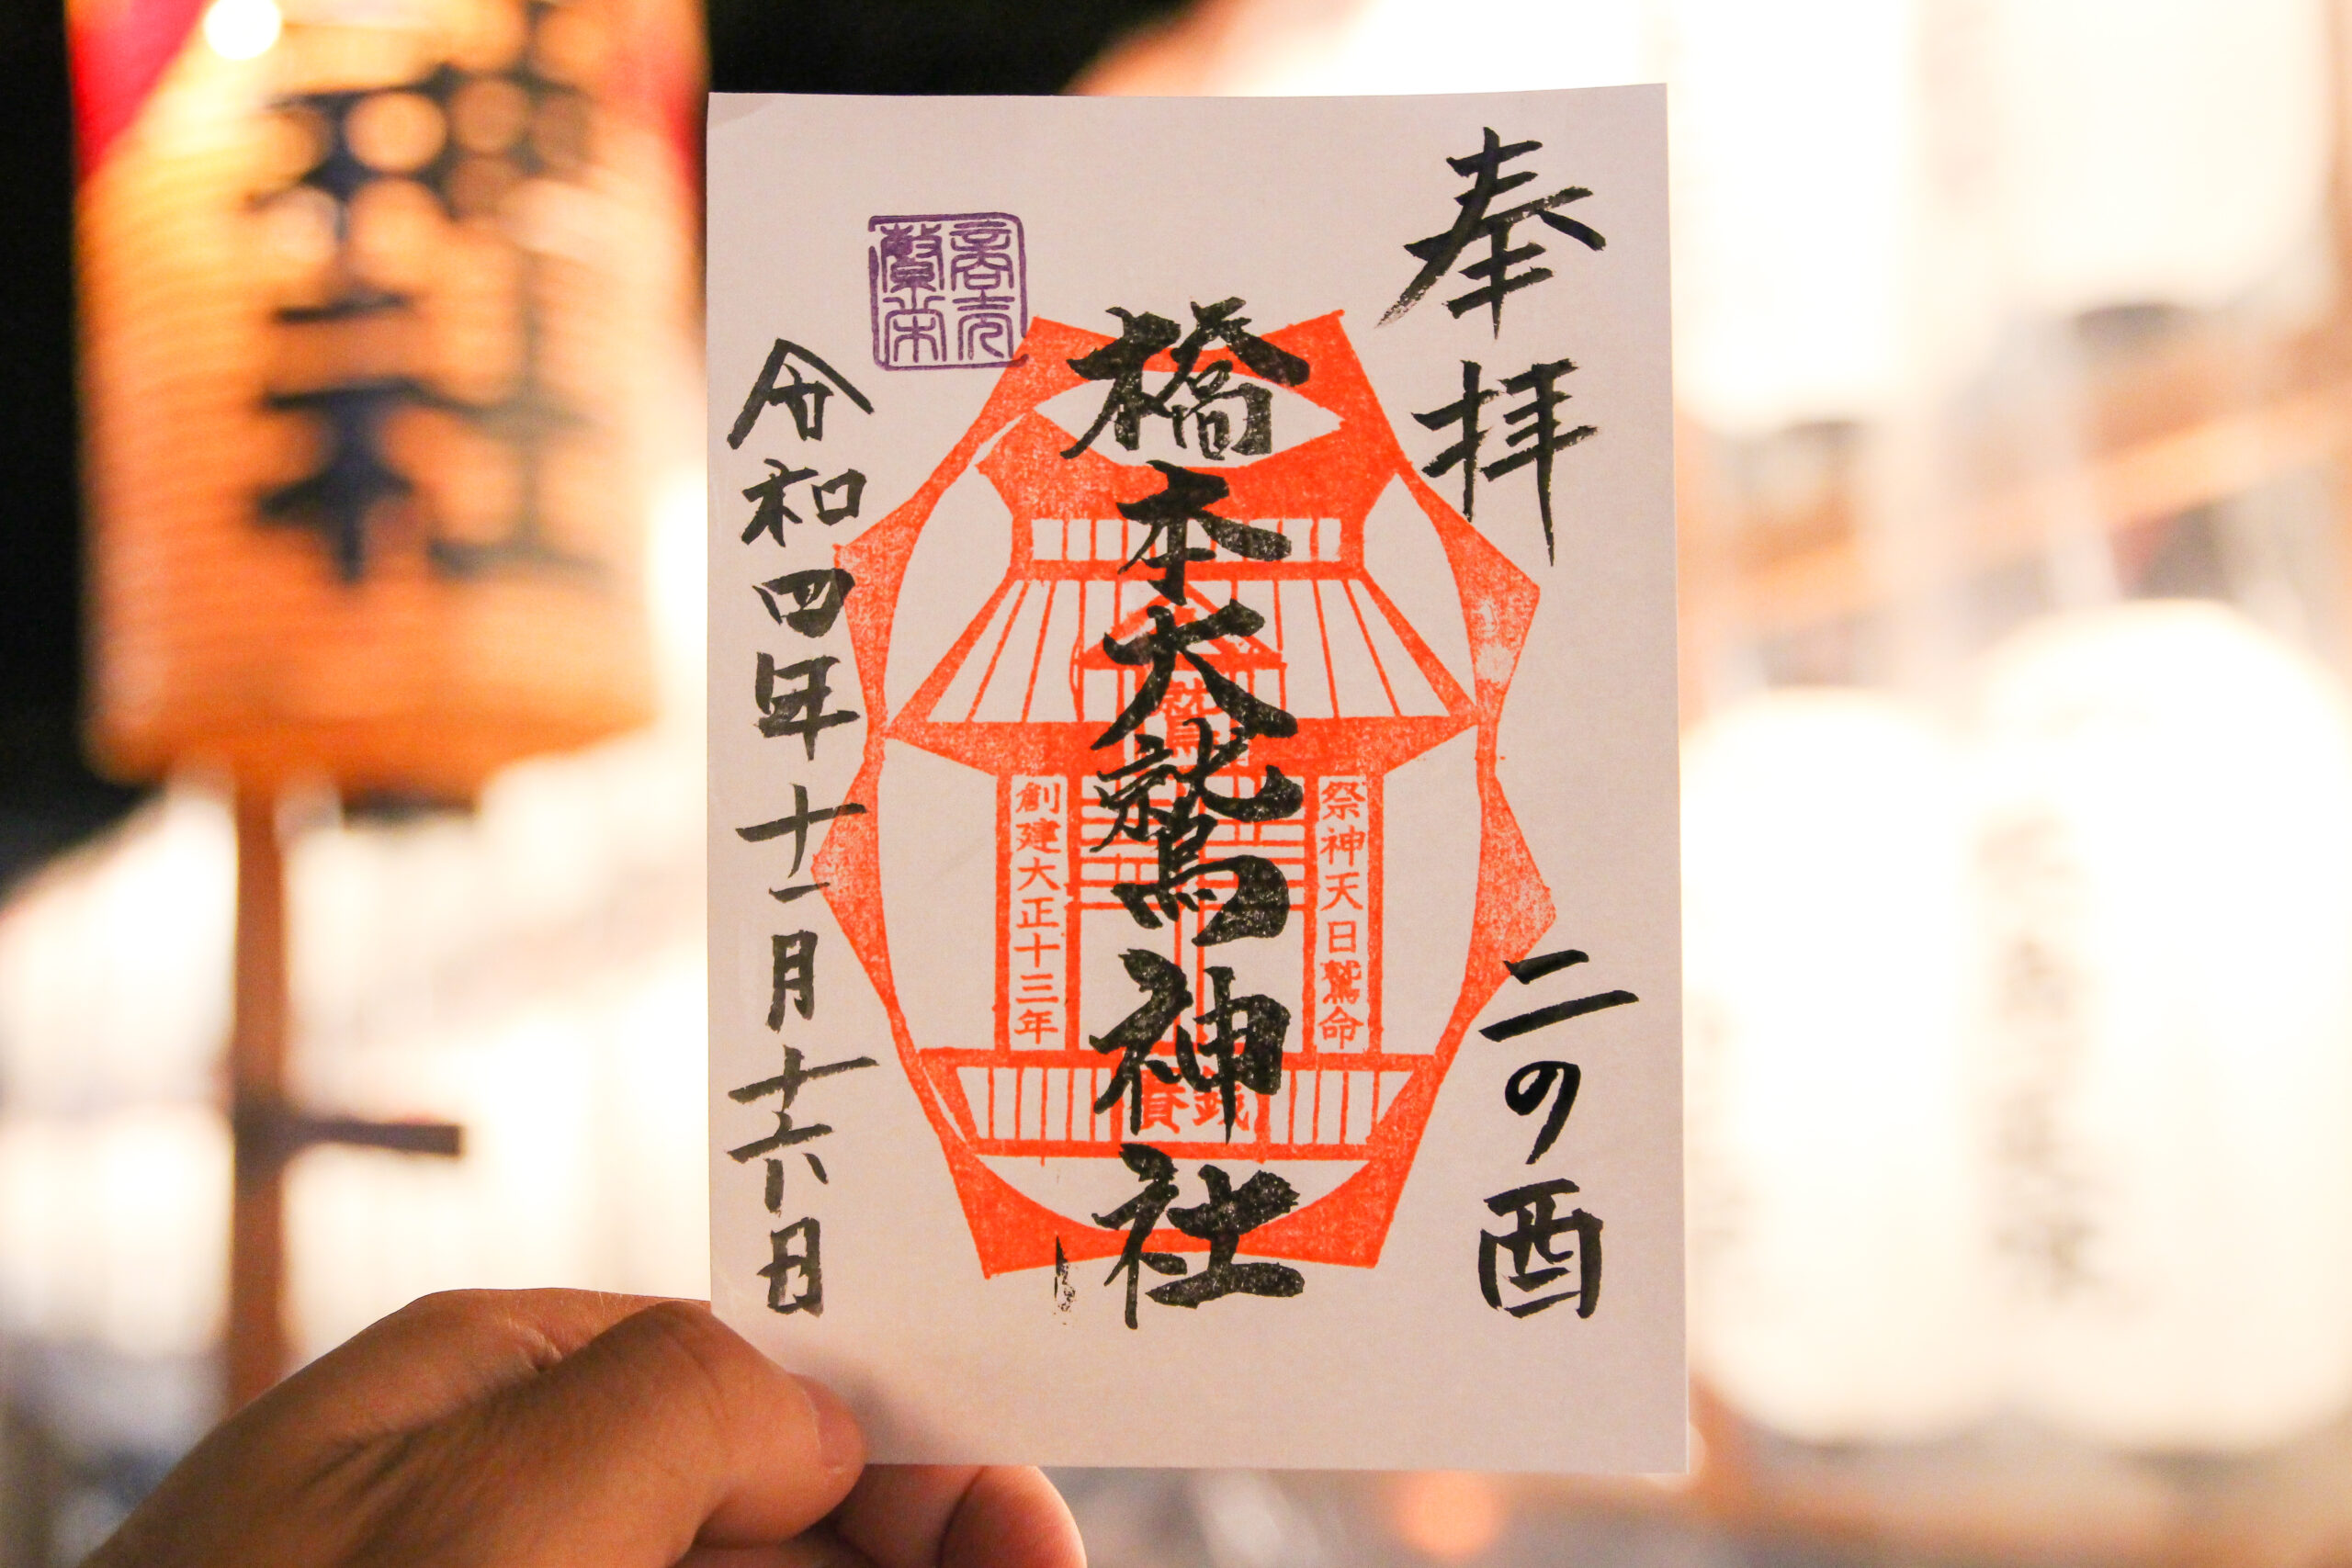 奉拝
二の酉
橋本大鷲神社
祭神天日鷲命
創建大正十三年
令和四年十一月十六日